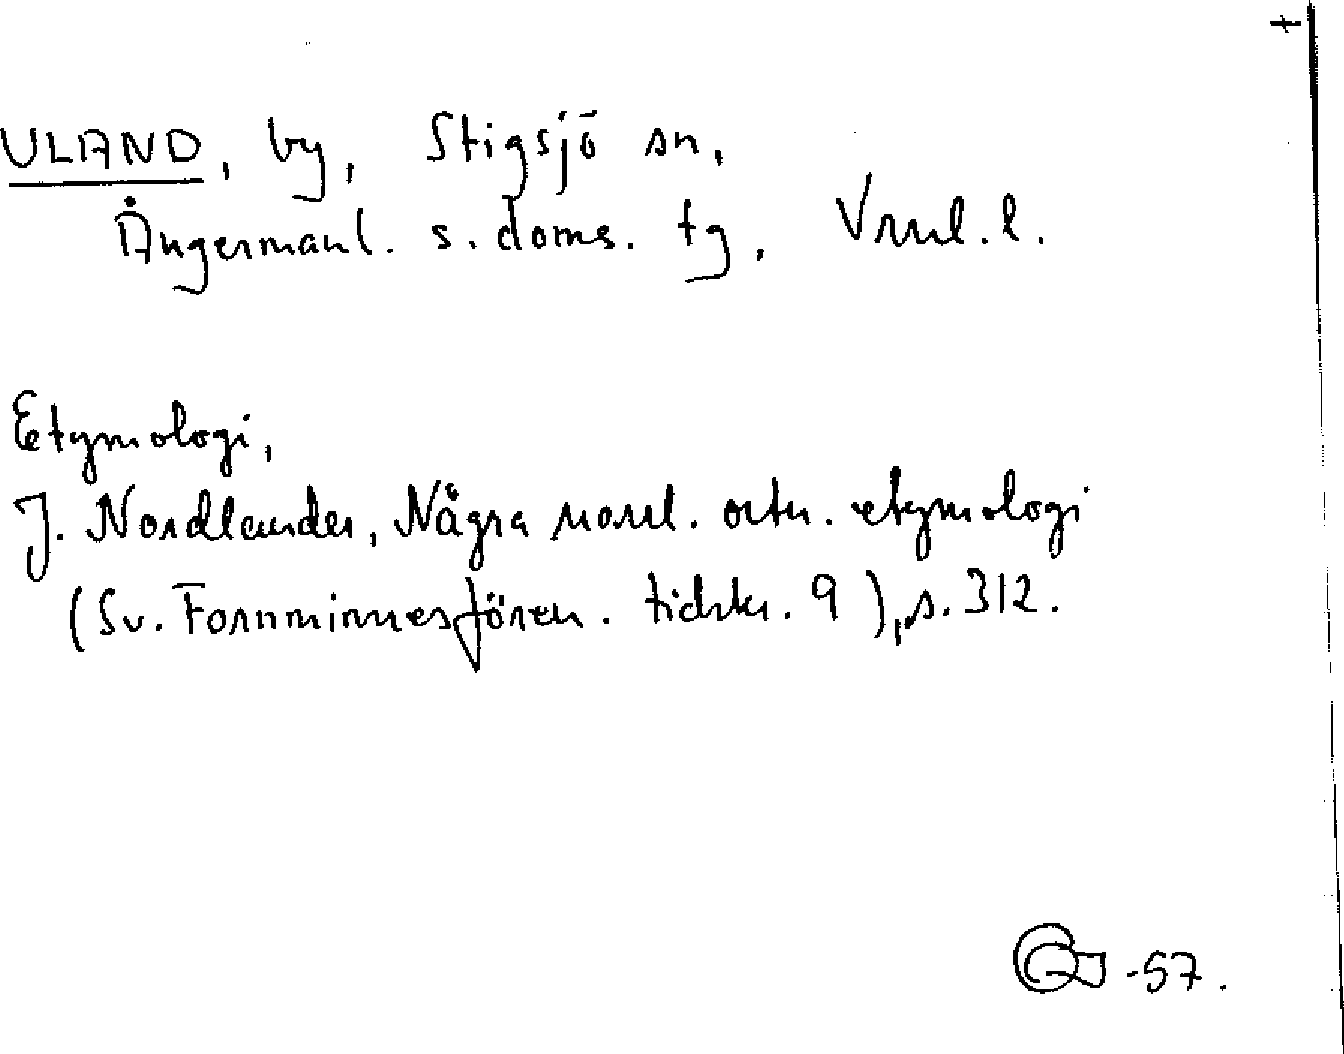 +
ULAND, by, Stigsjö sn,
Ångermanl. s. doms. tg, Vrnl. l.
Etymologi,
J. Nordlander, Några norrl. ortn. etymologi
(Sv. Fornminnesfören. tidskr. 9), s. 312.
-57.